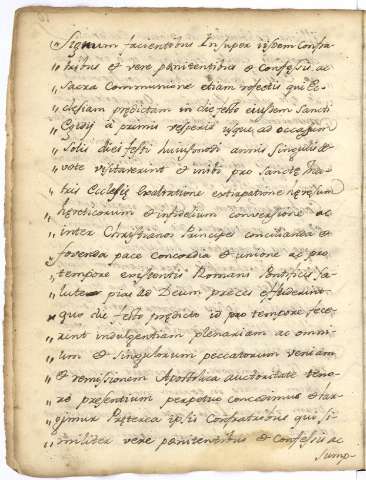 „ Signum facientibus Insuper iisdem Confra-
„ tribus et vere pænitentibus & Confessis, ac
„ Sacra Communione etiam refectis qui Ec-
„ clesiam prædictam in die festo eiusdem Sancti
„ Egidij à primis vesperis usque ad occasum
„ Solis diei festi huiusmodi annis singulis de
„ vote visitaverint et inibi pro Sanctæ Ma-
„ tris Ecclesiæ Exaltatione extirpatione heresum
„ hereticorum et infidelium conversione ac
„ inter Christianos Principes concilianda et
„ fovenda pace Concordia et unione ac pro
„ tempore existentis Romani Pontificis sa-
„ lute pias ad Deum preces effuderint
„ quo die festo prædicto id pro tempore fece-
„ rint indulgentiam plenariam ac omni-
„ um & Singulorum peccatorum veniam
„ et remissionem Apostolica auctoritate teno-
„ re præsentium perpetuo concedimus et lar-
„ gimur Præterea ipsis Confratribus qui si-
„ militer vere pænitentibus & Confessis ac
sump-